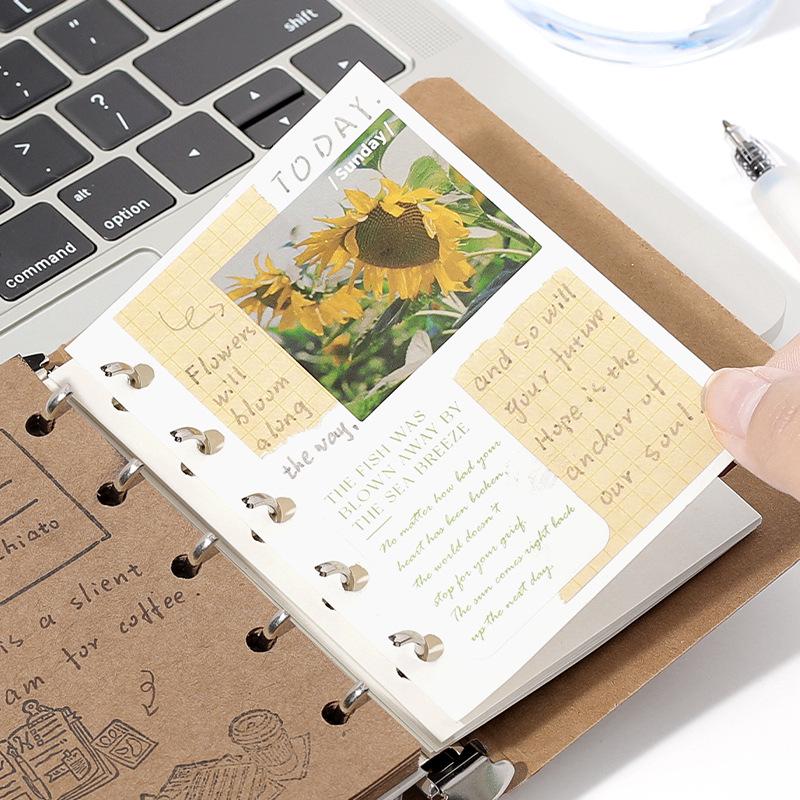 shift
?
/
>
.
alt
option
command
TODAY.
/ Sunday /
Flowers
will
bloom
along
the way,
and so will
your future.
Hope is the
anchor of
our soul.
THE FISH WAS
BLOWN AWAY BY
THE SEA BREEZE
No matter how bad your
heart has been broken,
the world doesn't
stop for your grief.
The sun comes right back
up the next day.
chiato
is a slient
am for coffee.